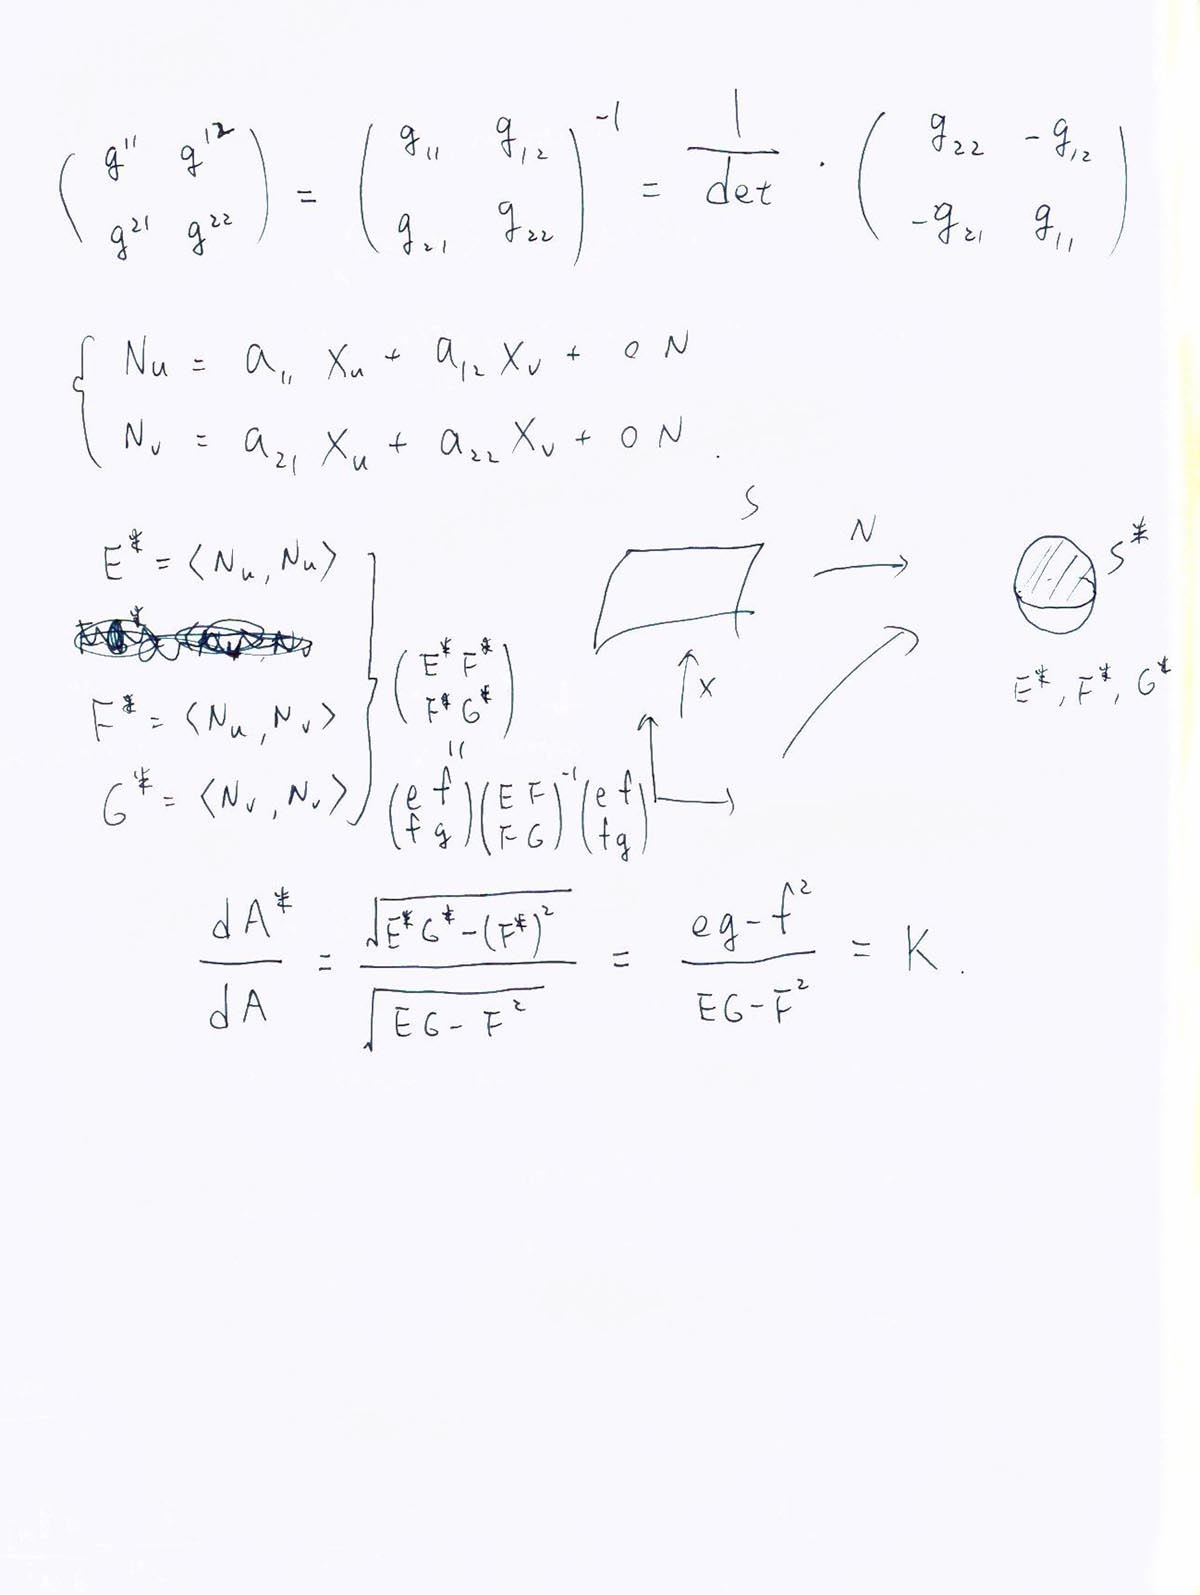 ( g¹¹ g¹² ; g²¹ g²² ) = ( g₁₁ g₁₂ ; g₂₁ g₂₂ )⁻¹ = 1/det · ( g₂₂ -g₁₂ ; -g₂₁ g₁₁ )
{ Nᵤ = a₁₁ Xᵤ + a₁₂ Xᵥ + 0 N
Nᵥ = a₂₁ Xᵤ + a₂₂ Xᵥ + 0 N .
S
N
S*
E* = ⟨Nᵤ, Nᵤ⟩
F* = ⟨Nᵤ, Nᵥ⟩
G* = ⟨Nᵥ, Nᵥ⟩ }
( E* F* ; F* G* )
X
E*, F*, G*
=
( e f ; f g ) ( E F ; F G )⁻¹ ( e f ; f g )
dA*/dA = √(E*G* - (F*)²) / √(EG - F²) = (eg - f²)/(EG - F²) = K .